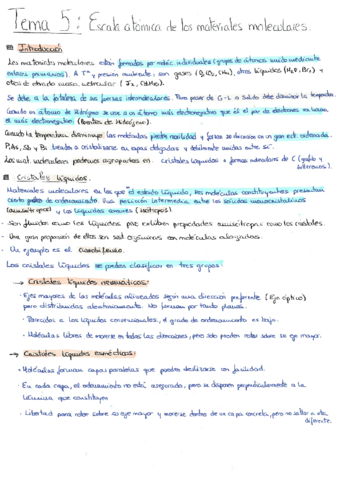 Tema 5: Escala atómica de los materiales moleculares.
Introducción
Los materiales moleculares están formados por moléc. individuales (grupos de átomos unidos mediante
enlaces primarios). A Tª y presión ambiente, son gases (O₂, Cl₂, CH₄), otros líquidos (H₂O, Br₂) y
otros de estado masa molecular (I₂,
Se debe a la fortaleza de sus fuerzas intermoleculares. Para pasar de G-L a sólido debe disminuir la temperatura.
Cuando un átomo de Hidrógeno se une a un átomo más electronegativo que él el par de electrones se
al más electronegativo (Puentes de Hidrógeno).
Cuando la temperatura disminuye las moléculas pierden movilidad y fuerzas se
P, As, Sb y Bi tienden a cristalizarse en capas dobladas y débilmente unidas entre sí.
Los mat. moleculares podemos agruparlos en: Cristales líquidos + formas moleculares de C (grafito y
fullerenos).
Cristales líquidos.
Materiales moleculares en los que el estado líquido, las moléculas constituyentes presentan
cierto grado de ordenamiento. Su posición intermedia entre los sólidos monocristalinos
(anisótropos) y los líquidos comunes (isótropos)
- Son fluidos como los líquidos pero exhiben propiedades anisótropas como los cristales.
- Una gran proporción de ellos son sol. orgánicas con moléculas alargadas.
- Un ejemplo es el
Los cristales líquidos se pueden clasificar en tres grupos:
→ Cristales líquidos nemáticos:
· Ejes mayores de las moléculas alineados según una dirección preferente (Eje óptico)
pero distribuidas aleatoriamente. No forman por tanto planos.
· Parecidos a los líquidos convencionales, el grado de ordenamiento es bajo.
· Moléculas libres de moverse en todas las direcciones, pero solo pueden rotar sobre su eje mayor.
→ Cristales líquidos esmécticos:
· Moléculas forman capas paralelas que pueden deslizarse con facilidad.
· En cada capa, el ordenamiento no está asegurado, pero se disponen perpendicularmente a la
lámina que constituyen
· Libertad para rotar sobre su eje mayor y moverse dentro de su capa concreta, pero no saltar a otra
diferente.